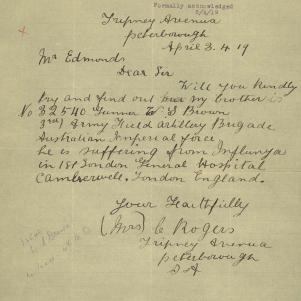 Formally acknowledged
8/4/19
Tripney Avenua
peterborough
April 3. 4. 19
Mr Edmonds
Dear Sir
Will you Kindly
try and find out how my brother is
No 32540 Gunner W S Brown
3rd Army Field artillery Brigade
Australian Imperial force
he is suffering from Influnya
in 1st London General Hospital
Camberwell. London England.
Your Faithfully
(Mrs) C Rogers
Tripney Avenua
peterborough
S A